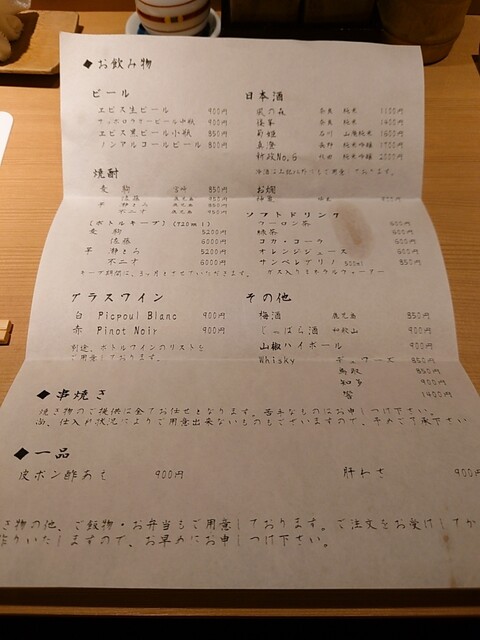 ◆お飲み物
ビール
エビス生ビール 900円
サッポロラガービール中瓶 900円
エビス黒ビール小瓶 850円
ノンアルコールビール 800円
日本酒
風の森 奈良 純米 1100円
篠峯 奈良 純米 1400円
菊姫 石川 山廃純米 1600円
真澄 長野 純米吟醸 1700円
新政No.6 秋田 純米吟醸 2000円
焼酎
麦 駒 宮崎 850円
佐藤 鹿児島 950円
芋 野うさ 鹿児島
不二才 鹿児島 950円
お燗
(ボトルキープ)(720ml)
麦 駒 5200円
佐藤 6000円
芋 5200円
不二才 6000円
キープ期間は、3ヶ月とさせていただきます。
ソフトドリンク
ウーロン茶 600円
緑茶 600円
コカ・コーラ 600円
オレンジジュース 600円
サンペレグリノ 500ml 850円
ガス入りミネラルウォーター
グラスワイン
白 Picpoul Blanc 900円
赤 Pinot Noir 900円
別途、ボトルワインのリストを
ご用意しております。
その他
梅酒 鹿児島 850円
じゃばら酒 和歌山 900円
山椒ハイボール 900円
Whisky デュワーズ 850円
鳥取 850円
知多 900円
響 1400円
◆串焼き
焼き物のご提供は全てお任せとなります。苦手なものはお申しつけ下さい。
尚、仕入れ状況によりご用意出来ないものもございますので、予めご了承下さい
◆一品
皮ポン酢あえ 900円
肝わさ 900円
き物の他、ご飯物・お弁当もご用意しております。ご注文をお受けしてか
作りいたしますので、お早めにお申しつけ下さい。